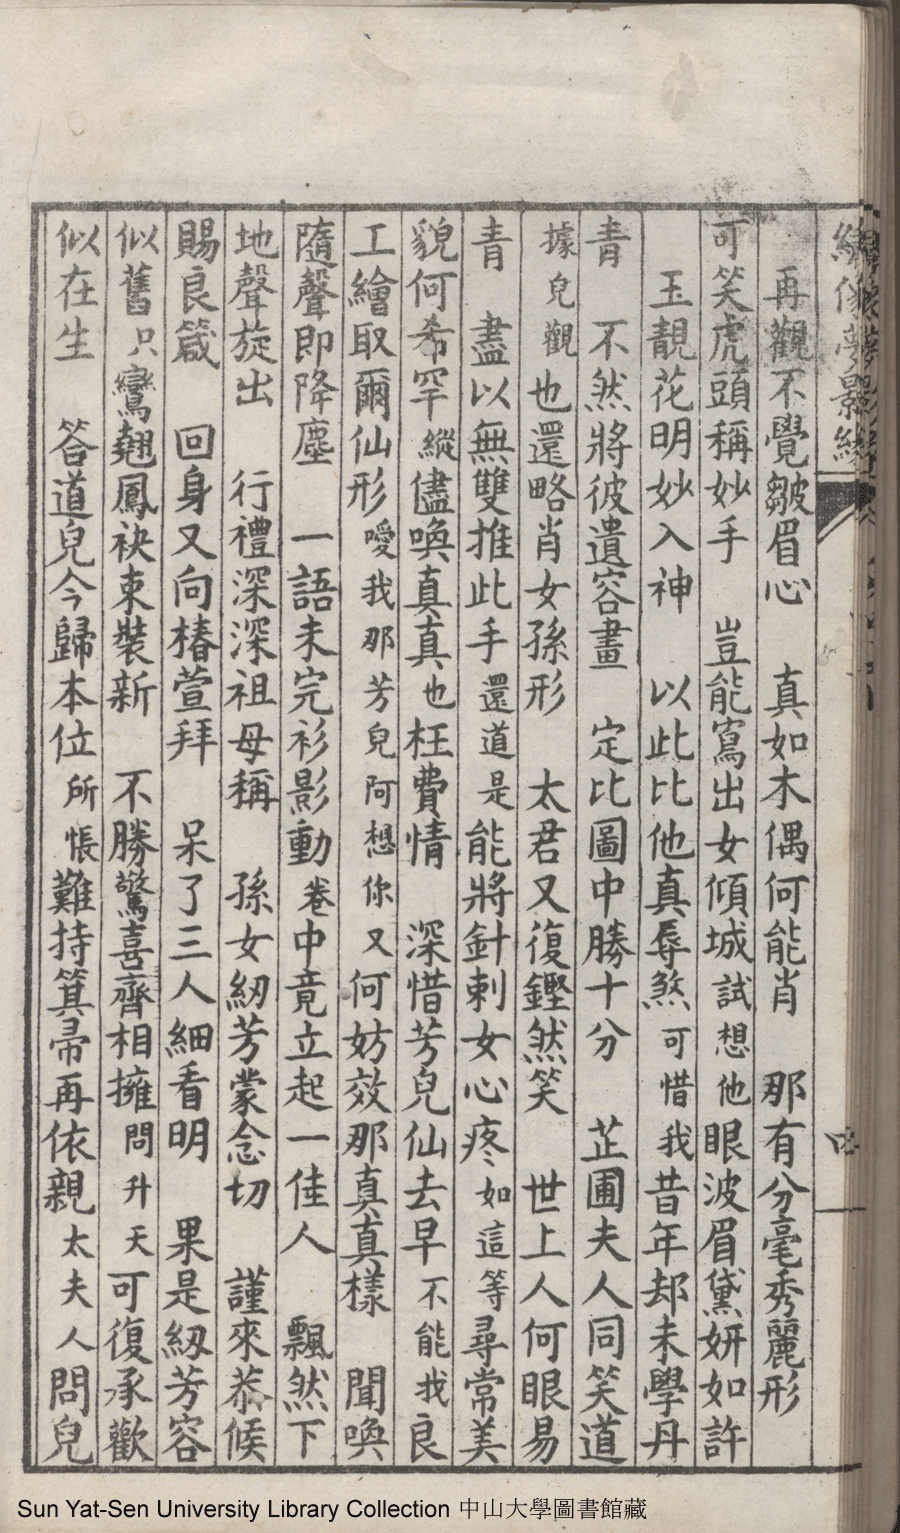 繡像夢影緣
四
再觀不覺皺眉心　真如木偶何能肖　那有分毫秀麗形
可笑虎頭稱妙手　豈能寫出女傾城試想他眼波眉黛妍如許
玉靚花明妙入神　以此比他真辱煞可惜我昔年却未學丹
青　不然將彼遺容畫　定比圖中勝十分　芷圃夫人同笑道
據兒觀也還略肖女孫形　太君又復鏗然笑　世上人何眼易
青　盡以無雙推此手還道是能將針刺女心疼如這等尋常美
貌何希罕縱儘喚真真也枉費情　深惜芳兒仙去早不能我良
工繪取爾仙形噯我那芳兒阿想你又何妨效那真真樣　聞喚
隨聲即降塵　一語未完衫影動卷中竟立起一佳人　飄然下
地聲旋出　行禮深深祖母稱　孫女紉芳蒙念切　謹來恭候
賜良箴　回身又向椿萱拜　呆了三人細看明　果是紉芳容
似舊只鸞翹鳳袂束裝新　不勝驚喜齊相擁問升天可復承歡
似在生　答道兒今歸本位所悵難持箕帚再依親太夫人問兒
Sun Yat-Sen University Library Collection 中山大學圖書館藏